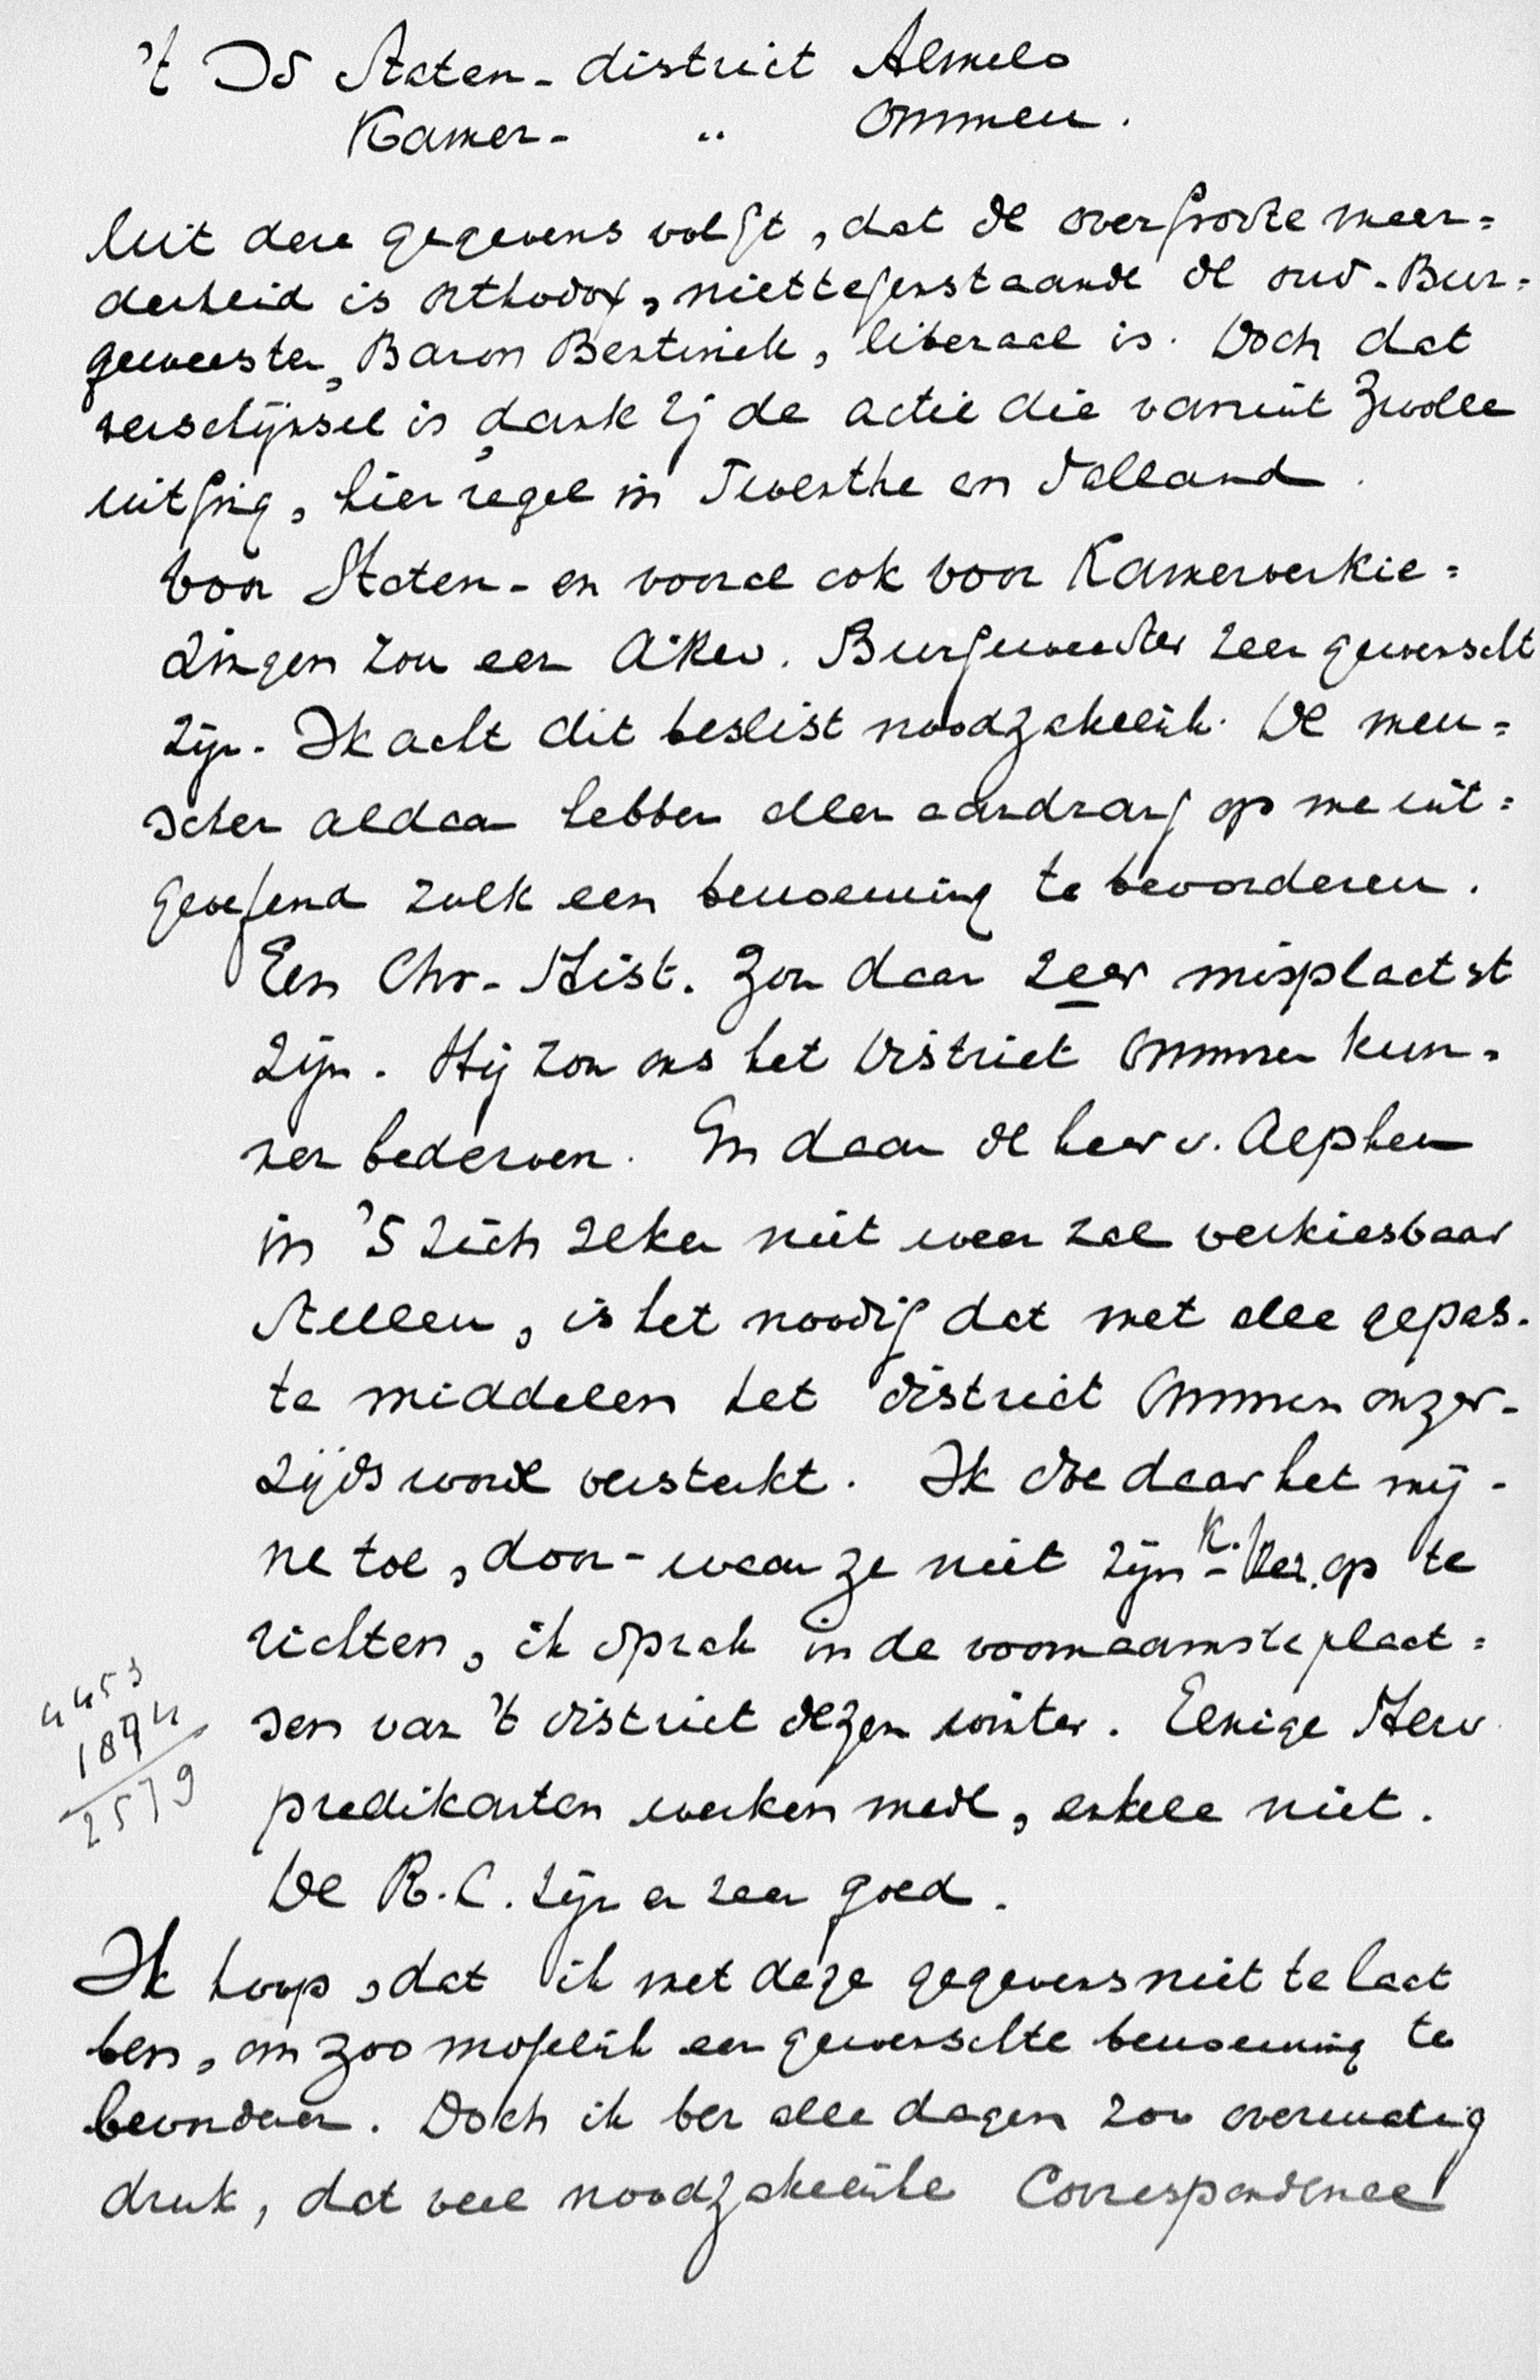 't Is Staten-district Almelo
Kamer- " Ommen.
Uit deze gegevens volgt, dat de overgroote meer=
derheid is orthodox, niettegenstaande de oud-Bur=
gemeester, Baron Bentinck, liberaal is. Doch dat
verschijnsel is, dank zij de actie die vanuit Zwolle
uitging, hier regel in Twenthe en Salland.
Voor Staten- en vooral ook voor Kamerverkie=
zingen zou een A.Rev. Burgemeester zeer gewenscht
zijn. Ik acht dit beslist noodzakelijk. De men=
schen aldaar hebben allen aandrang op me uit=
geoefend zulk een benoeming te bevorderen.
Een Chr.-Hist. zou daar zeer misplaatst
zijn. Hij zou ons het District Ommen kun=
nen bederven. En daar de heer v. Alphen
in '5 zich zeker niet weer zal verkiesbaar
stellen, is het noodig dat met alle gepas-
te middelen het district Ommen onzer-
zijds word versterkt. Ik doe daar het mij-
ne toe, door - waar ze niet zijn - K. Ver. op te
richten, ik sprak in de voornaamste plaat=
sen van 't district dezen winter. Eenige Herv.
predikanten werken mede, enkele niet.
De R.C. zijn er zeer goed.
4453
1894
2579
Ik hoop, dat ik met deze gegevens niet te laat
ben, om zoo mogelijk een gewenschte benoeming te
bevorderen. Doch ik ben alle dagen zoo overmatig
druk, dat veel noodzakelijke Correspondence